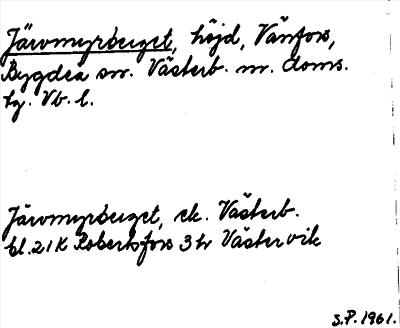 Järvmyrberget, höjd, Vänfors,
Bygdeå sn. Västerb. n. doms.
tg. Vb. l.
Järvmyrberget, ek. Västerb.
bl. 21K Robertsfors 3 h Västervik
S.P. 1961.